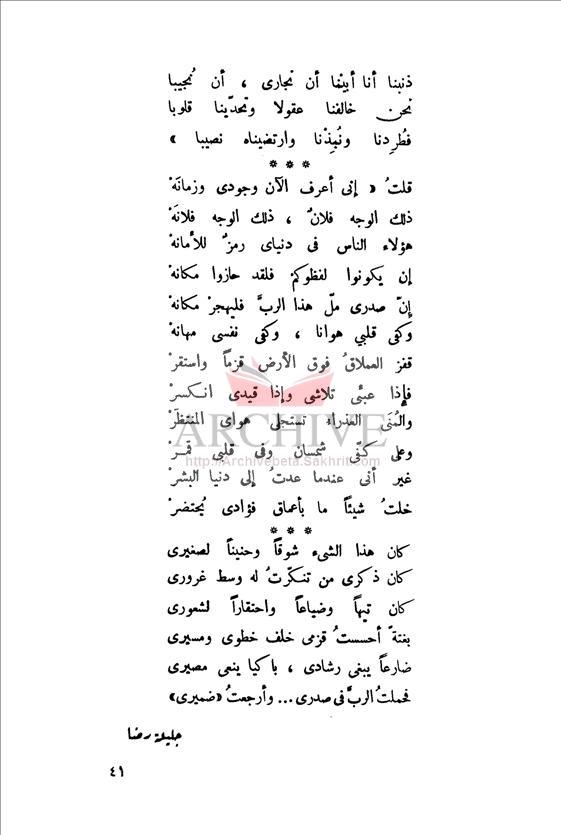 ذنبنا أنا أبينا أن نجارى ، أن نجيبا
نحن خالفنا عقولا وتحدّينا قلوبا
فطُرِدنا ونُبِذْنا وارتضيناه نصيبا »
* * *
قلتُ « إنى أعرف الآن وجودى وزمانَهْ
ذلك الوجه فلانٌ ، ذلك الوجه فلانَهْ
هؤلاء الناس فى دنياى رمزٌ للأمانهْ
إن يكونوا لفظوكمْ فلقد حازوا مكانهْ
إنّ صدرى ملّ هذا الربَّ فليهجرْ مكانهْ
وكفى قلبي هوانا ، وكفى نفسى مهانهْ
قفز العملاقُ فوق الأرض قزماً واستقرْ
فإذا عبئى تلاشى وإذا قيدى انكسرْ
والمُنَى العذراء تستجلى هواى المنتظَرْ
وعلى كفّى شمسان وفى قلبي قمرْ
غير أنى عندما عدتُ إلى دنيا البشرْ
خلتُ شيئاً ما بأعماق فؤادى يُحتضرْ
* * *
كان هذا الشىء شوقاً وحنيناً لصغيرى
كان ذكرى من تنكّرتُ له وسط غرورى
كان تيهاً وضياعاً واحتقاراً لشعورى
بغتةً أحسستُ قزمى خلف خطوى ومسيرى
ضارعاً يبغى رشادى ، باكيا ينعى مصيرى
فحملتُ الربَّ فى صدرى... وأرجعتُ «ضميرى»
جليلة رضا
٤١
ARCHIVE
http://Archivebeta.Sakhrit.com